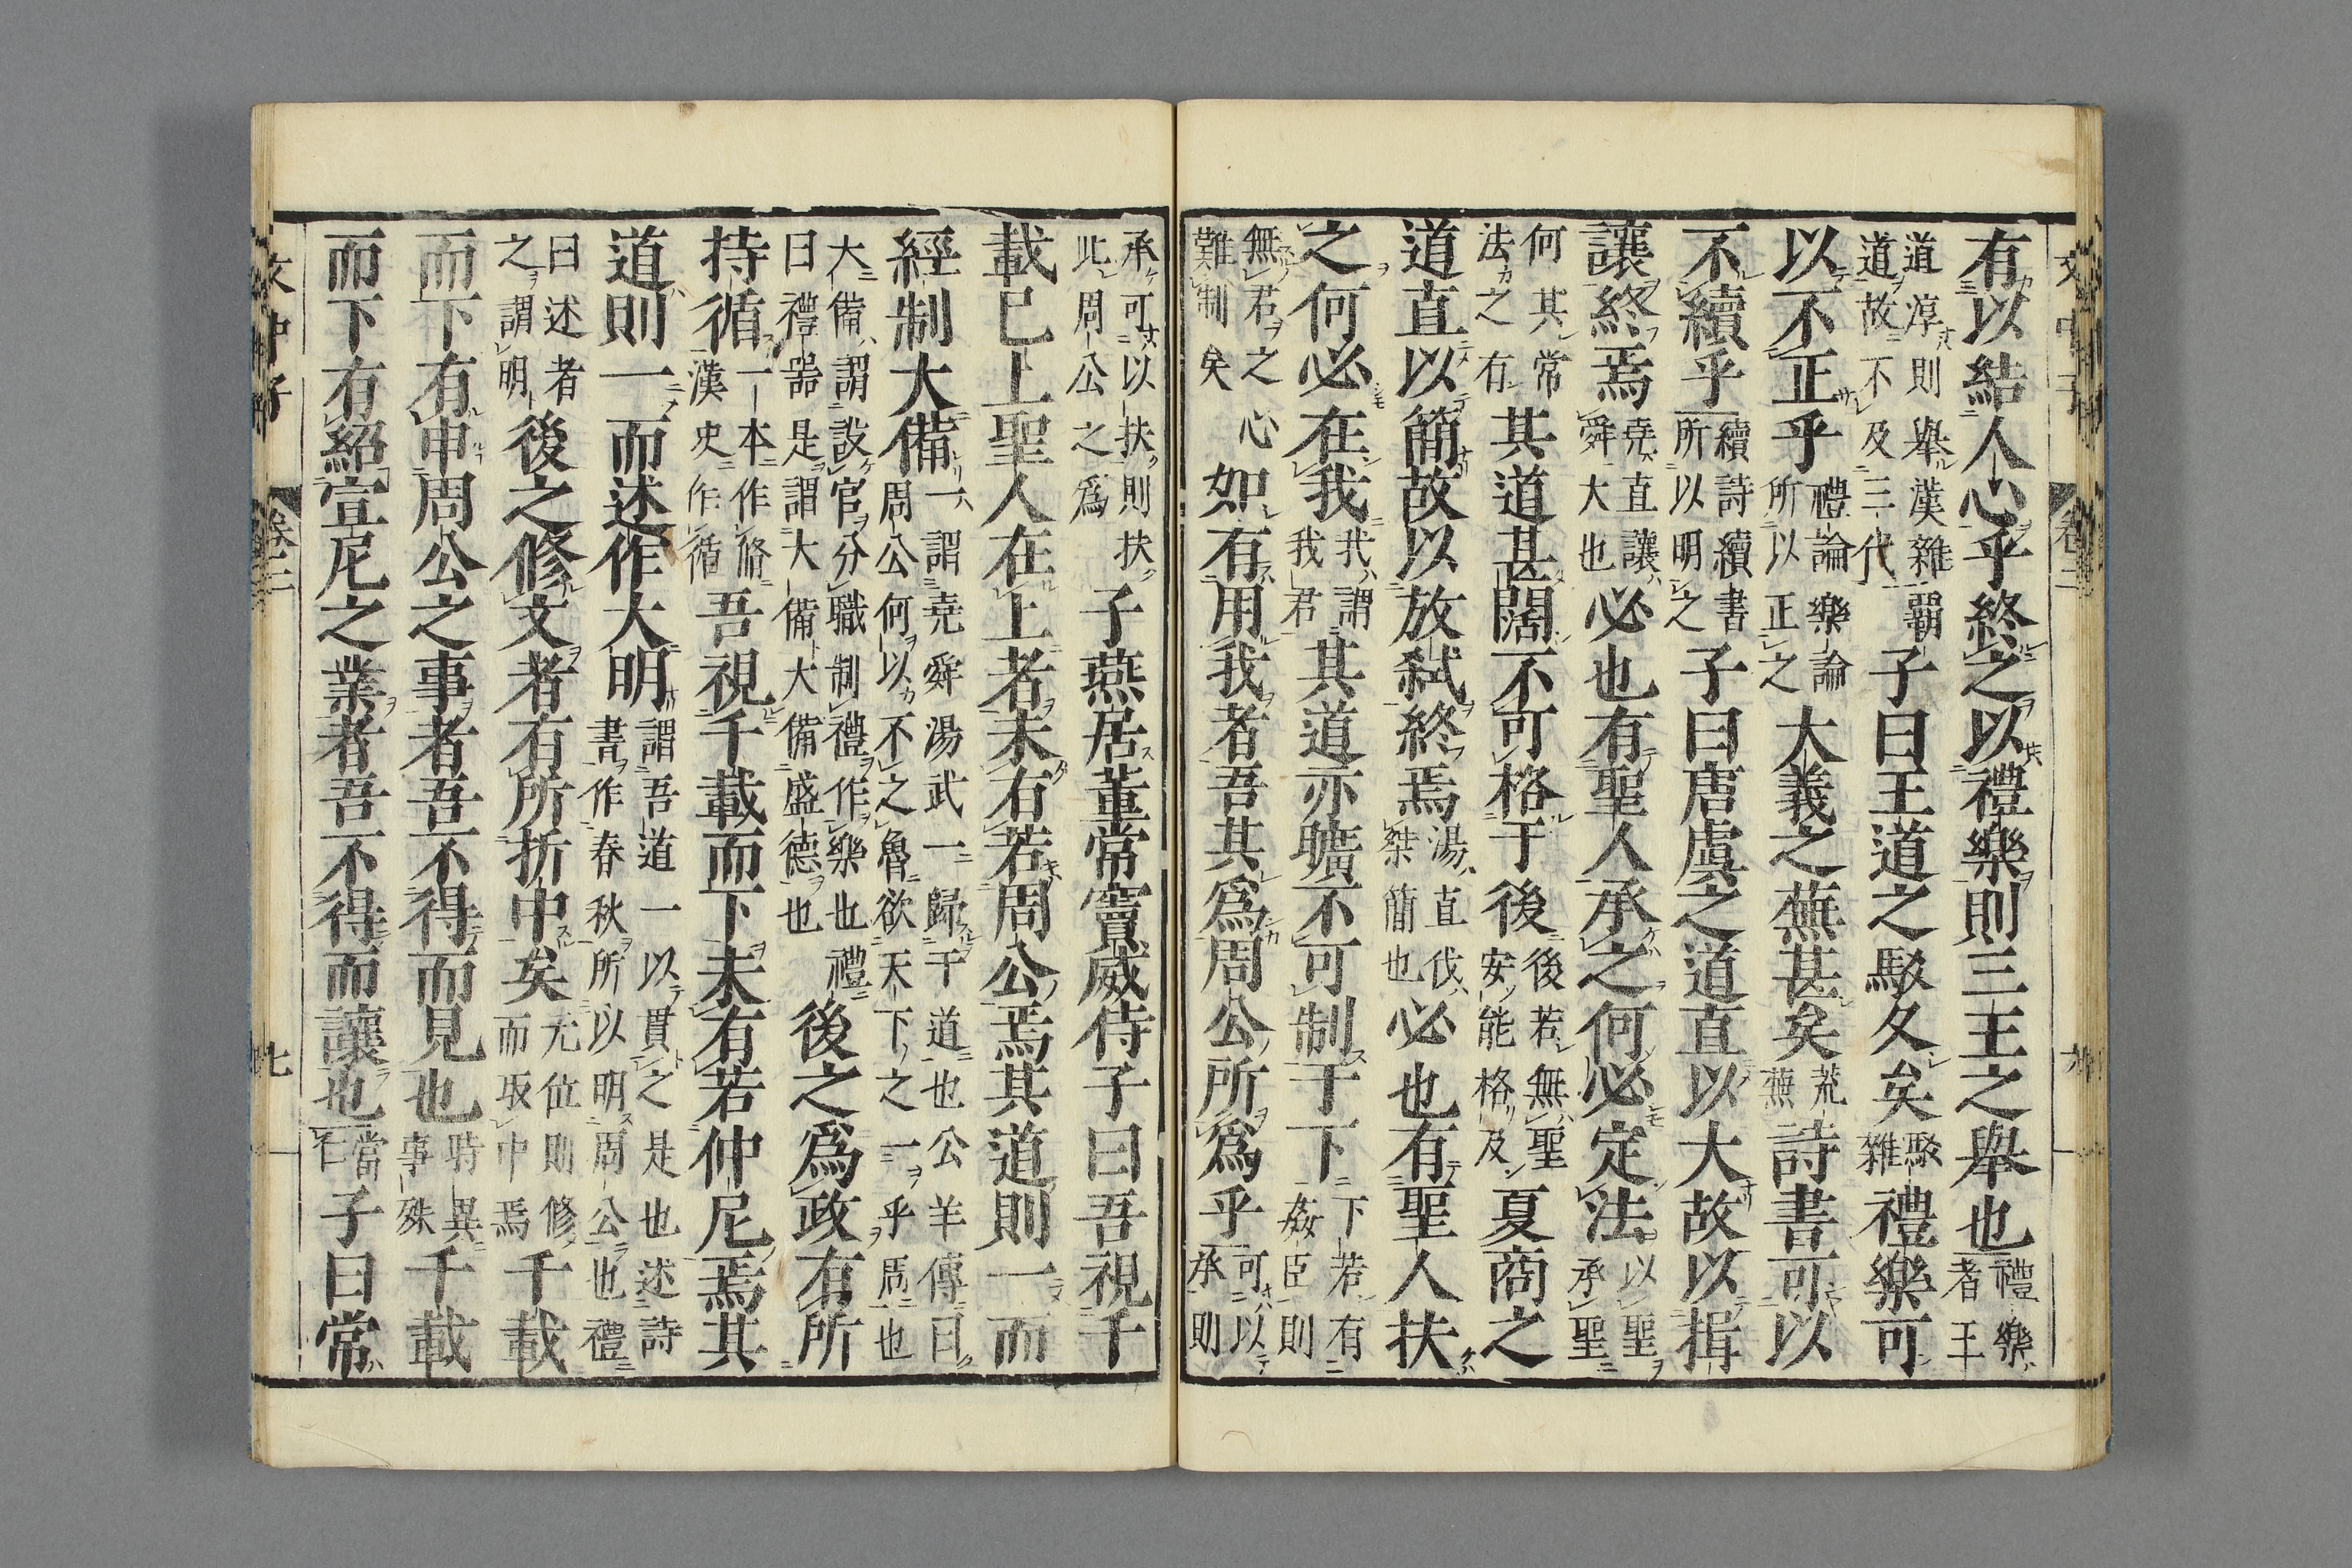 有以結人心乎終之以禮樂則三王之舉也禮樂者王
道淳則舉漢雜霸道故不及三代子曰王道之駁久矣駁雜禮樂可
以不正乎禮論樂論所以正之大義之蕪甚矣荒蕪詩書可以
不續乎續詩續書所以明之子曰唐虞之道直以大故以揖
讓終焉堯直讓舜大也必也有聖人承之何必定法以聖承聖
何其常法之有其道甚闊不可格于後後若無聖安能格及夏商之
道直以簡故以放弒終焉湯直伐桀簡也必也有聖人扶
之何必在我我謂我君其道亦曠不可制于下下若有姦臣則
無君之心難制矣如有用我者吾其為周公所為乎可以承則
承可以扶則扶此周公之為子燕居董常竇威侍子曰吾視千
載已上聖人在上者未有若周公焉其道則一而
經制大備一謂堯舜湯武一歸于道也公羊傳曰周公何以不之魯欲天下之一乎周也
大備謂設官分職制禮作樂也禮曰禮器是謂大備大備盛德也後之為政有所
持循一本作脩漢史作循吾視千載而下未有若仲尼焉其
道則一而述作大明謂吾道一以貫之是也述詩書作春秋所以明周公也禮
曰述者之謂明後之修文者有所折中矣无位則修而取中焉千載
而下有申周公之事者吾不得而見也時異事殊千載
而下有紹宣尼之業者吾不得而讓也當仁子曰常
文中子
卷二